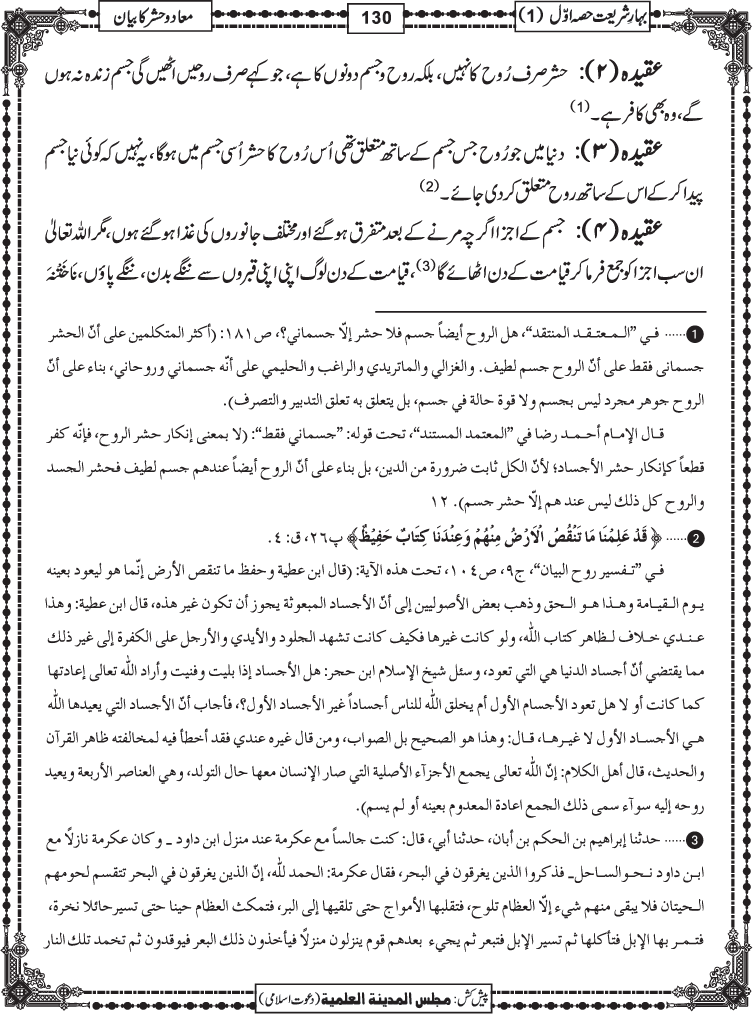 بہارِ شریعت حصہ اوّل (1)
130
معاد و حشر کا بیان
عقیدہ (۲): حشر صرف رُوح کا نہیں، بلکہ روح و جسم دونوں کا ہے، جو کہے صرف روحیں اٹھیں گی جسم زندہ نہ ہوں
گے، وہ بھی کافر ہے۔ (1)
عقیدہ (۳): دنیا میں جو رُوح جس جسم کے ساتھ متعلق تھی اُس رُوح کا حشر اُسی جسم میں ہوگا، یہ نہیں کہ کوئی نیا جسم
پیدا کر کے اس کے ساتھ روح متعلق کر دی جائے۔ (2)
عقیدہ (۴): جسم کے اجزا اگرچہ مرنے کے بعد متفرق ہوگئے اور مختلف جانوروں کی غذا ہوگئے ہوں، مگر اللہ تعالیٰ
ان سب اجزا کو جمع فرما کر قیامت کے دن اٹھائے گا (3)، قیامت کے دن لوگ اپنی اپنی قبروں سے ننگے بدن، ننگے پاؤں، نَاخَتْنَہ
1 ...... فـي ”الـمـعتـقـد المنتقد“، هل الروح أيضاً جسم فلا حشر إلّا جسماني؟، ص١٨١: (أكثر المتكلمين على أنّ الحشر
جسمانی فقط على أنّ الروح جسم لطيف. والغزالي والماتريدي والراغب والحليمي على أنّه جسماني وروحاني، بناء على أنّ
الروح جوهر مجرد ليس بجسم ولا قوة حالة في جسم، بل يتعلق به تعلق التدبير والتصرف).
قـال الإمـام أحـمـد رضا في ”المعتمد المستند“، تحت قوله: ”جسماني فقط“: (لا بمعنى إنكار حشر الروح، فإنّه كفر
قطعاً كإنكار حشر الأجساد؛ لأنّ الكل ثابت ضرورة من الدين، بل بناء على أنّ الروح أيضاً عندهم جسم لطيف فحشر الجسد
والروح كل ذلك ليس عند هم إلّا حشر جسم). ١٢
2 ...... ﴿ قَدْ عَلِمْنَا مَا تَنْقُصُ الْاَرْضُ مِنْهُمْ وَعِنْدَنَا كِتَابٌ حَفِيْظٌ﴾ پ٢٦، ق: ٤.
في ”تـفسير روح البيان“، ج٩، ص١٠٤، تحت هذه الآية: (قال ابن عطية وحفظ ما تنقص الأرض إنّما هو ليعود بعينه
يـوم الـقيـامة وهـذا هـو الـحق وذهب بعض الأصوليين إلى أنّ الأجساد المبعوثة يجوز أن تكون غير هذه، قال ابن عطية: وهذا
عـنـدي خـلاف لـظاهر كتاب اللّٰه، ولو كانت غيرها فكيف كانت تشهد الجلود والأيدي والأرجل على الكفرة إلى غير ذلك
مما يقتضي أنّ أجساد الدنيا هي التي تعود، وسئل شيخ الإسلام ابن حجر: هل الأجساد إذا بليت وفنيت وأراد اللّٰه تعالى إعادتها
كما كانت أو لا هل تعود الأجسام الأول أم يخلق اللّٰه للناس أجساداً غير الأجساد الأول؟، فأجاب أنّ الأجساد التي يعيدها اللّٰه
هـي الأجسـاد الأول لا غيـرهـا، قـال: وهذا هو الصحيح بل الصواب، ومن قال غيره عندي فقد أخطأ فيه لمخالفته ظاهر القرآن
والحديث، قال أهل الكلام: إنّ اللّٰه تعالى يجمع الأجزآء الأصلية التي صار الإنسان معها حال التولد، وهي العناصر الأربعة ويعيد
روحه إليه سوآء سمى ذلك الجمع اعادة المعدوم بعينه أو لم يسم).
3 ...... حدثنا إبراهيم بن الحكم بن أبان، حدثنا أبي، قال: كنت جالساً مع عكرمة عند منزل ابن داود ـ وكان عكرمة نازلًا مع
ابـن داود نـحـوالسـاحل ـ فذكروا الذين يغرقون في البحر، فقال عكرمة: الحمد للّٰه، إنّ الذين يغرقون في البحر تتقسم لحومهم
الـحيتان فلا يبقى منهم شيء إلّا العظام تلوح، فتقلبها الأمواج حتى تلقيها إلى البر، فتمكث العظام حينا حتى تسير حائلا نخرة،
فتـمـر بها الإبل فتأكلها ثم تسير الإبل فتبعر ثم يجيء بعدهم قوم ينزلون منزلًا فيأخذون ذلك البعر فيوقدون ثم تخمد تلك النار
پیش کش: مجلس المدینة العلمیة (دعوت اسلامی)